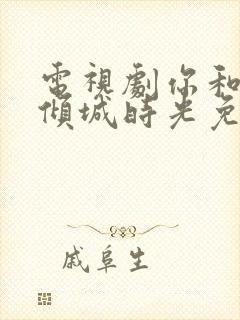 電視劇你和
傾城時光免
戚阜生